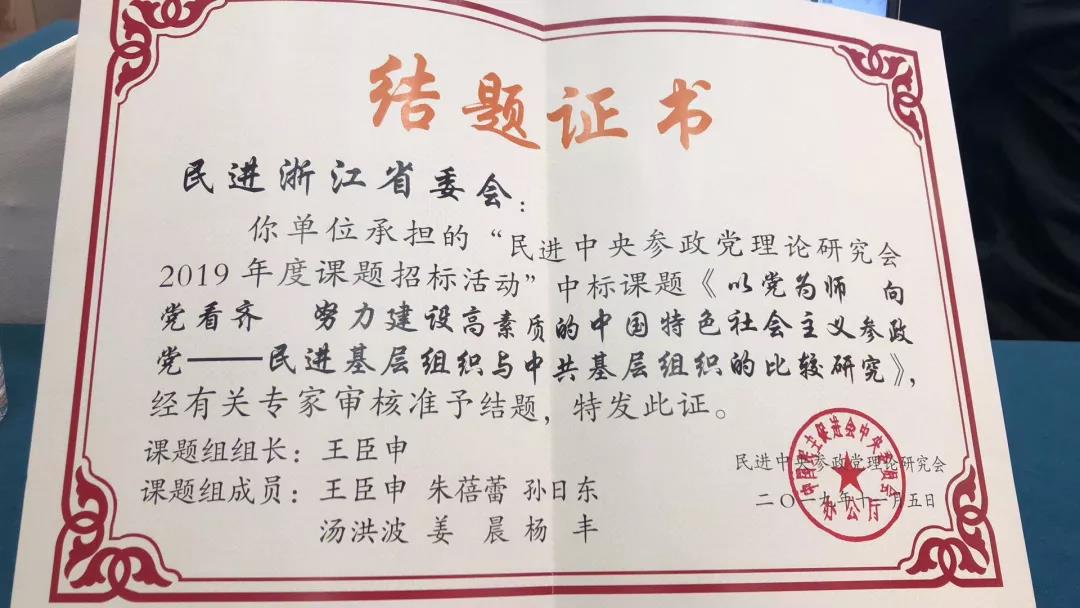 结题证书
民进浙江省委会：
你单位承担的“民进中央参政党理论研究会
2019年度课题招标活动”中标课题《以党为师 向
党看齐 努力建设高素质的中国特色社会主义参政
党——民进基层组织与中共基层组织的比较研究》，
经有关专家审核准予结题，特发此证。
课题组组长：王臣申
课题组成员：王臣申 朱蓓蕾 孙日东
汤洪波 姜 晨 杨 丰
民进中央参政党理论研究会
二〇一九年十一月五日
中国民主促进会中央委员会
办公厅